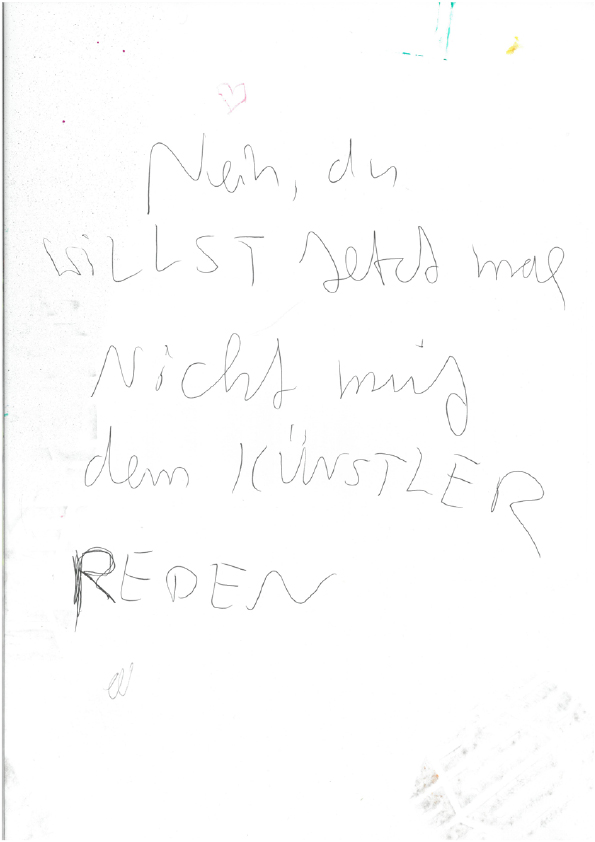 Nein, du
WiLLST jetzt mal
Nicht mit
dem KÜNSTLER
REDEN